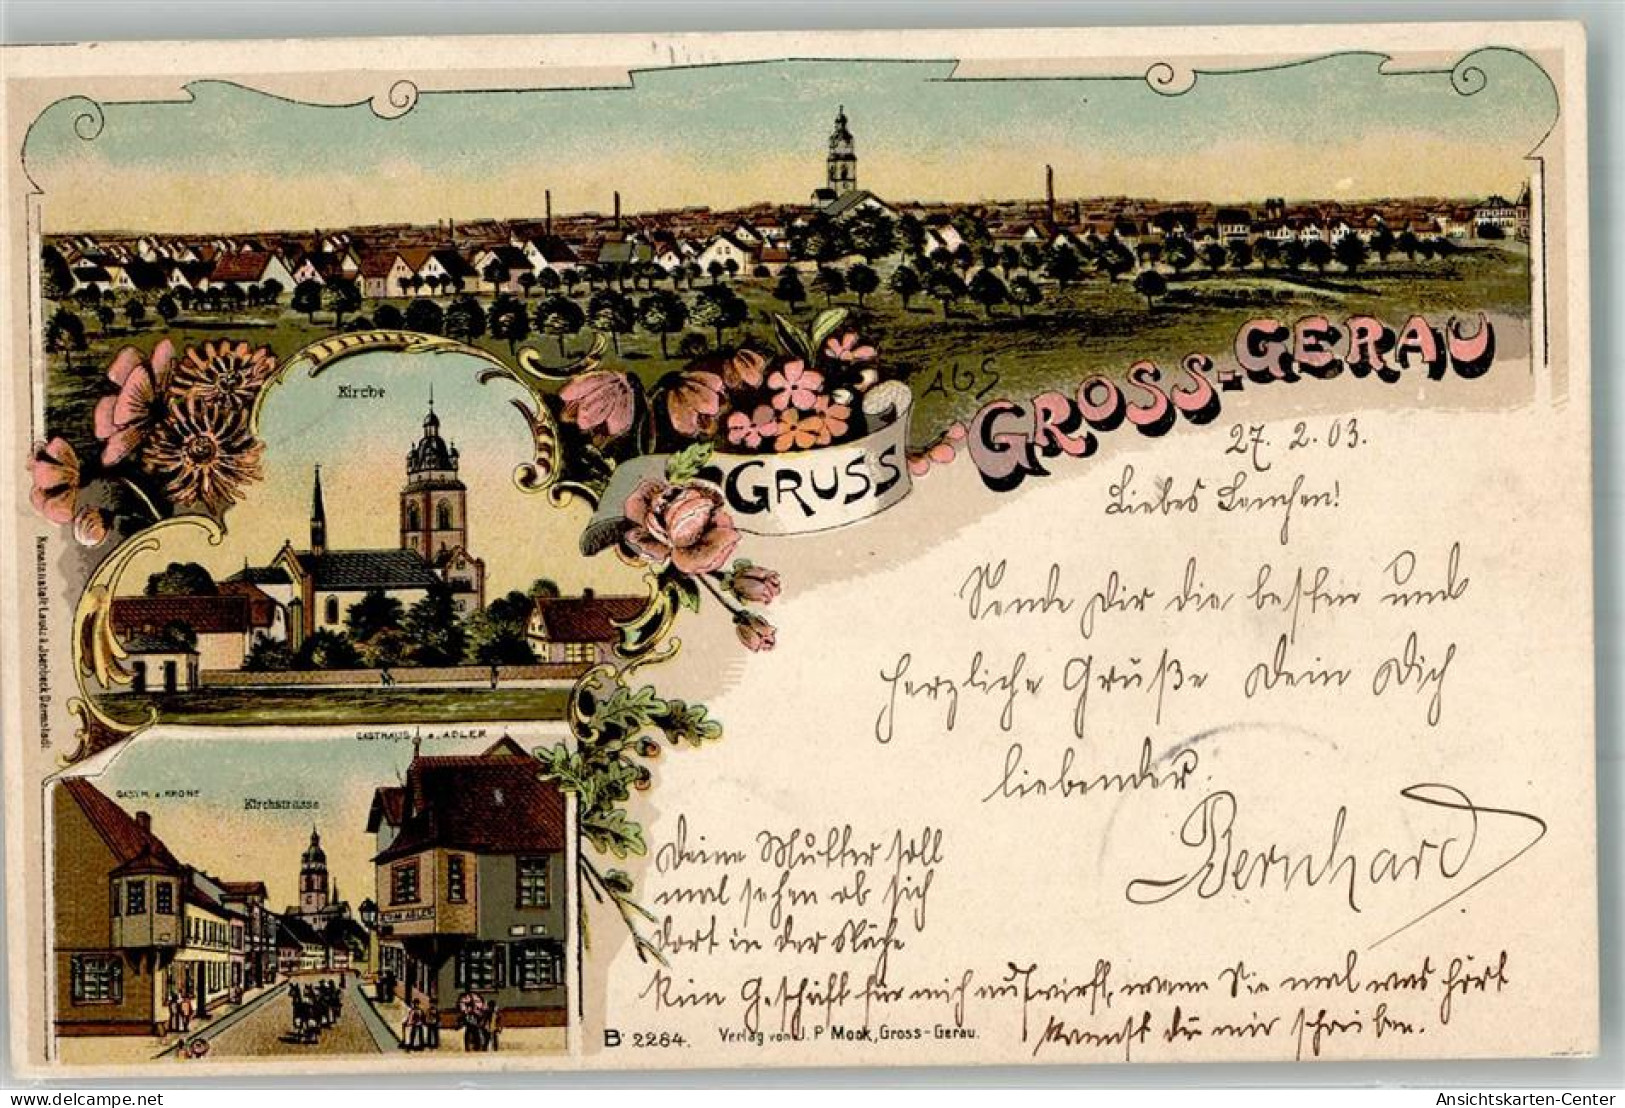 GRUSS AUS GROSS-GERAU
Kirche
27. 2. 03.
Liebes Lenchen!
Sende Dir die besten und
herzliche Grüße Dein Dich
liebender
Bernhard
Deine Mutter soll
mal sehen ob sich
dort in der Nähe
kein Geschäft für mich auswirft, wenn Sie mal was hört
kannst du mir schreiben.
GASTHAUS z. ADLER
GASTH. z. KRONE
Kirchstrasse
ZUM ADLER
Kunstanstalt Lautz & Isenbeck Darmstadt.
B 2284. Verlag von J. P. Mook, Gross-Gerau.
oldthing.de
Ansichtskarten-Center